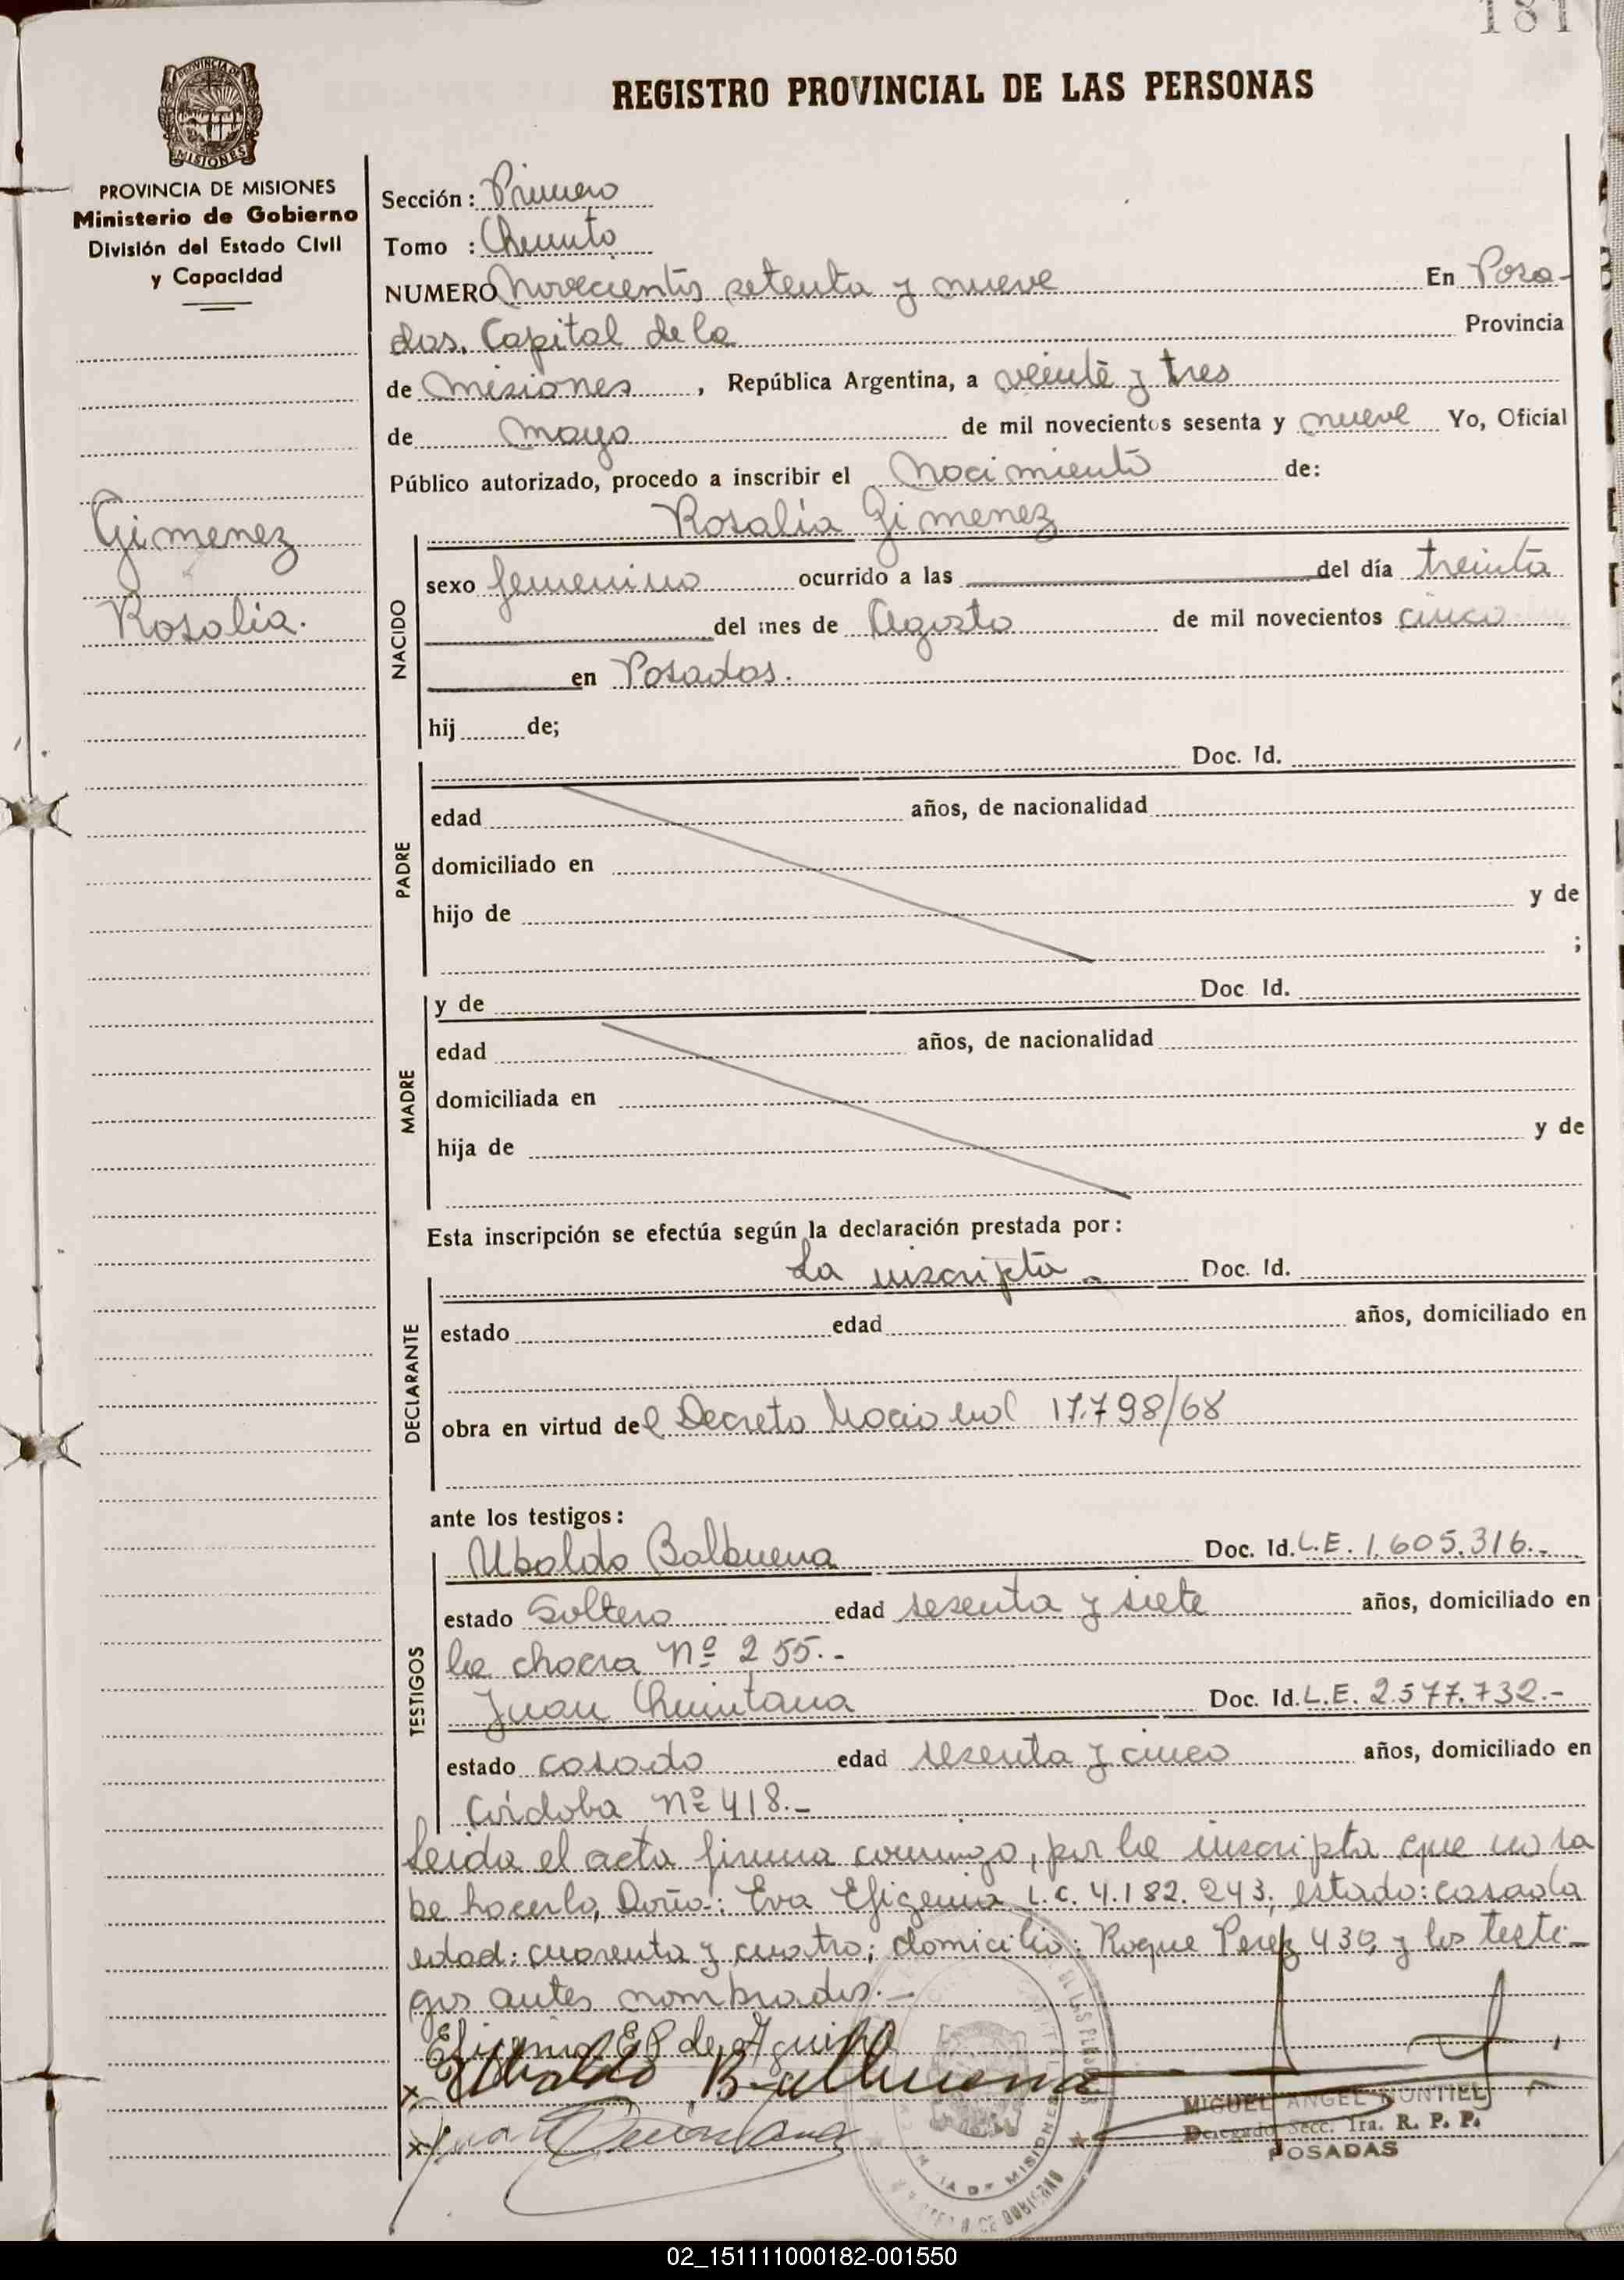 181
REGISTRO PROVINCIAL DE LAS PERSONAS
PROVINCIA DE MISIONES
MISIONES
PROVINCIA DE MISIONES
Ministerio de Gobierno
División del Estado Civil
y Capacidad
Gimenez
Rosalia.
Sección: Primero
Tomo : Quinto
NUMERO Novecientos setenta y nueve En Posa-
das, Capital de la Provincia
de Misiones, República Argentina, a veinte y tres
de Mayo de mil novecientos sesenta y nueve Yo, Oficial
Público autorizado, procedo a inscribir el Nacimiento de:
Rosalía Gimenez
NACIDO
sexo femenino ocurrido a las del día treinta
del mes de Agosto de mil novecientos cinco
en Posadas.
hij de;
PADRE
Doc. Id.
edad años, de nacionalidad
domiciliado en
hijo de y de
;
MADRE
y de Doc. Id.
edad años, de nacionalidad
domiciliada en
hija de y de
Esta inscripción se efectúa según la declaración prestada por:
DECLARANTE
La inscripta - Doc. Id.
estado edad años, domiciliado en
obra en virtud del Decreto Nacional 17.798/68
ante los testigos:
TESTIGOS
Ubaldo Balbuena Doc. Id. L.E. 1.605.316.-
estado Soltero edad sesenta y siete años, domiciliado en
la chacra Nº 255.-
Juan Quintana Doc. Id. L.E. 2.577.732.-
estado casado edad sesenta y cinco años, domiciliado en
Córdoba Nº 418.-
Leida el acta firma conmigo, por la inscripta que no sa
be hacerlo, Doña: Eva Efigenia L.C. 4.182.243; estado: casada
edad: cuarenta y cuatro; domicilio: Roque Perez 430, y los testi-
gos antes nombrados.-
Efigenia E P de Aguirre
x Ubaldo Balbuena
x Juan Quintana
MIGUEL ANGEL MONTIEL
Delegado Secc. 1ra. R. P. P.
POSADAS
02_151111000182-001550